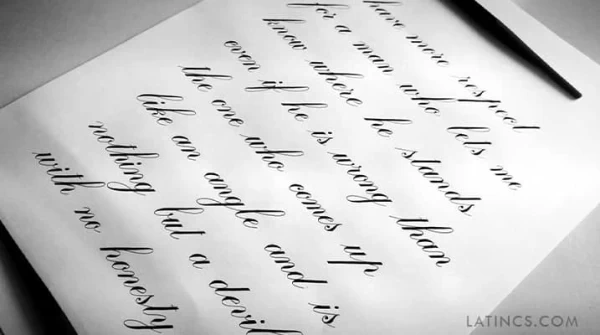 have more respect
for a man who lets me
know where he stands
even if he is wrong than
the one who comes up
like an angle and is
nothing but a devil
with no honesty
LATINCS.COM